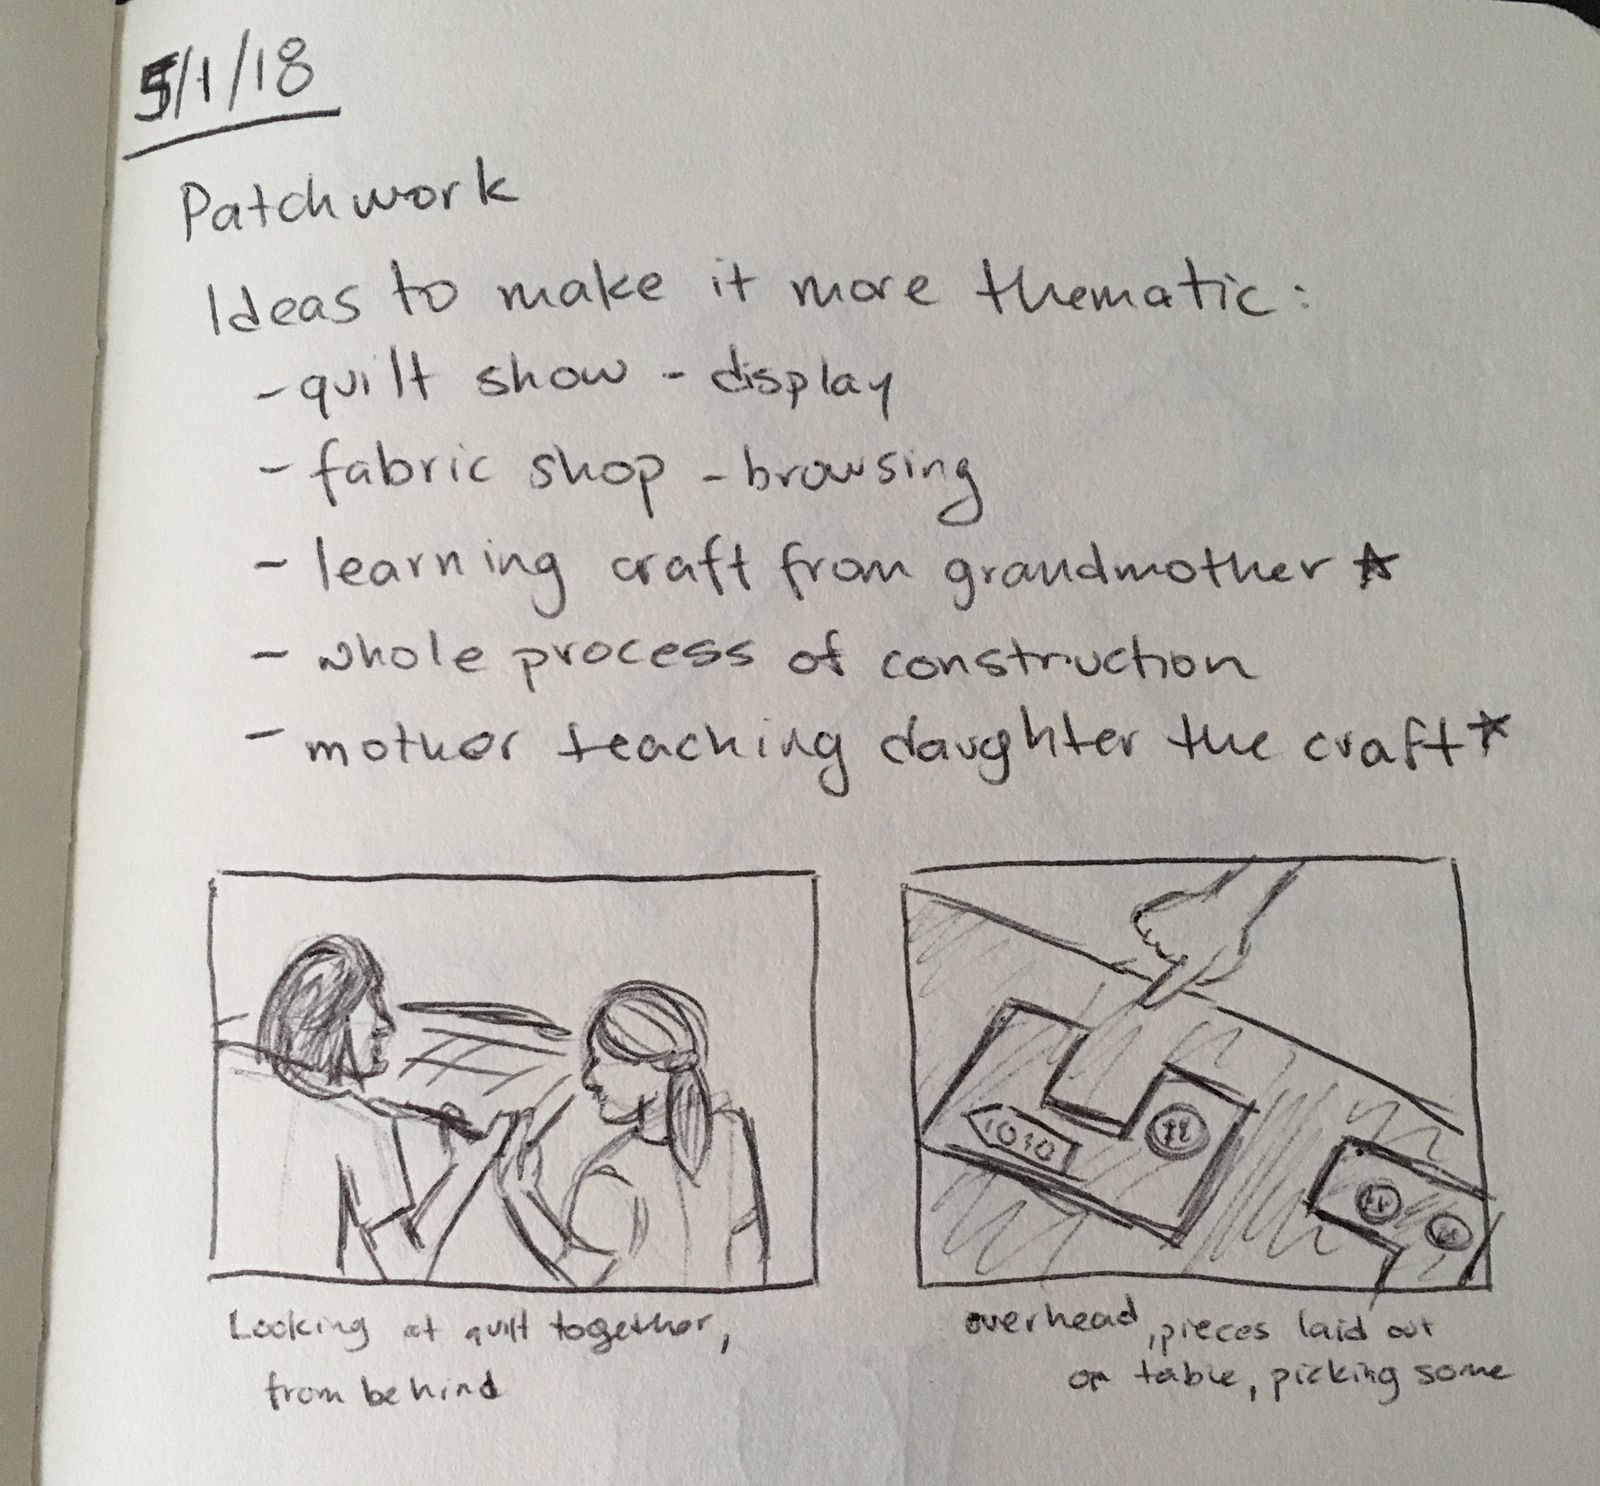 5/1/18
Patchwork
Ideas to make it more thematic:
- quilt show - display
- fabric shop - browsing
- learning craft from grandmother ☆
- whole process of construction
- mother teaching daughter the craft ☆
1010
Looking at quilt together,
from behind
overhead, pieces laid out
on table, picking some